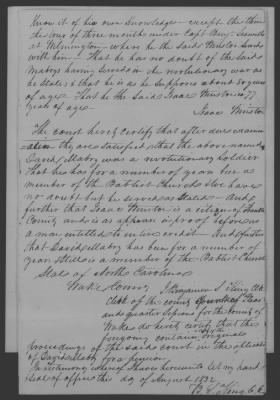 Know it of his own knowledge – except the three
of three months under Capt Benj.
at Wilmington – where he the said Winston
with him – That he has no doubt of the said
Mabry having served in the revolutionary war as
he states & that he is as he supposes about 80 years
of age. That he the said Isaac Winston is 77
years of age –
Isaac Winston
The court hereby certify that after due exami
nation they are satisfied that the above named
David Mabry was a revolutionary soldier
That he has for a number of years been a
member of the Baptist Church & we have
no doubt but he served as stated – And
further that Isaac Winston is a citizen of
County and is as appears in proof before us
a man entitled to credit – And further
that David Mabry has been for a number of
years & still is a member of the Baptist Church
State of North Carolina
Wake County I Benjamin S King Clk
Clerk of the county court of Pleas
and quarter sessions for the county of
Wake do hereby certify that the
foregoing contains the original
proceedings of the said court in the
of David Mabry for a pension.
In testimony whereof I have hereunto set my hand
& seal of office this day of August 1832
B. S. King C.C.